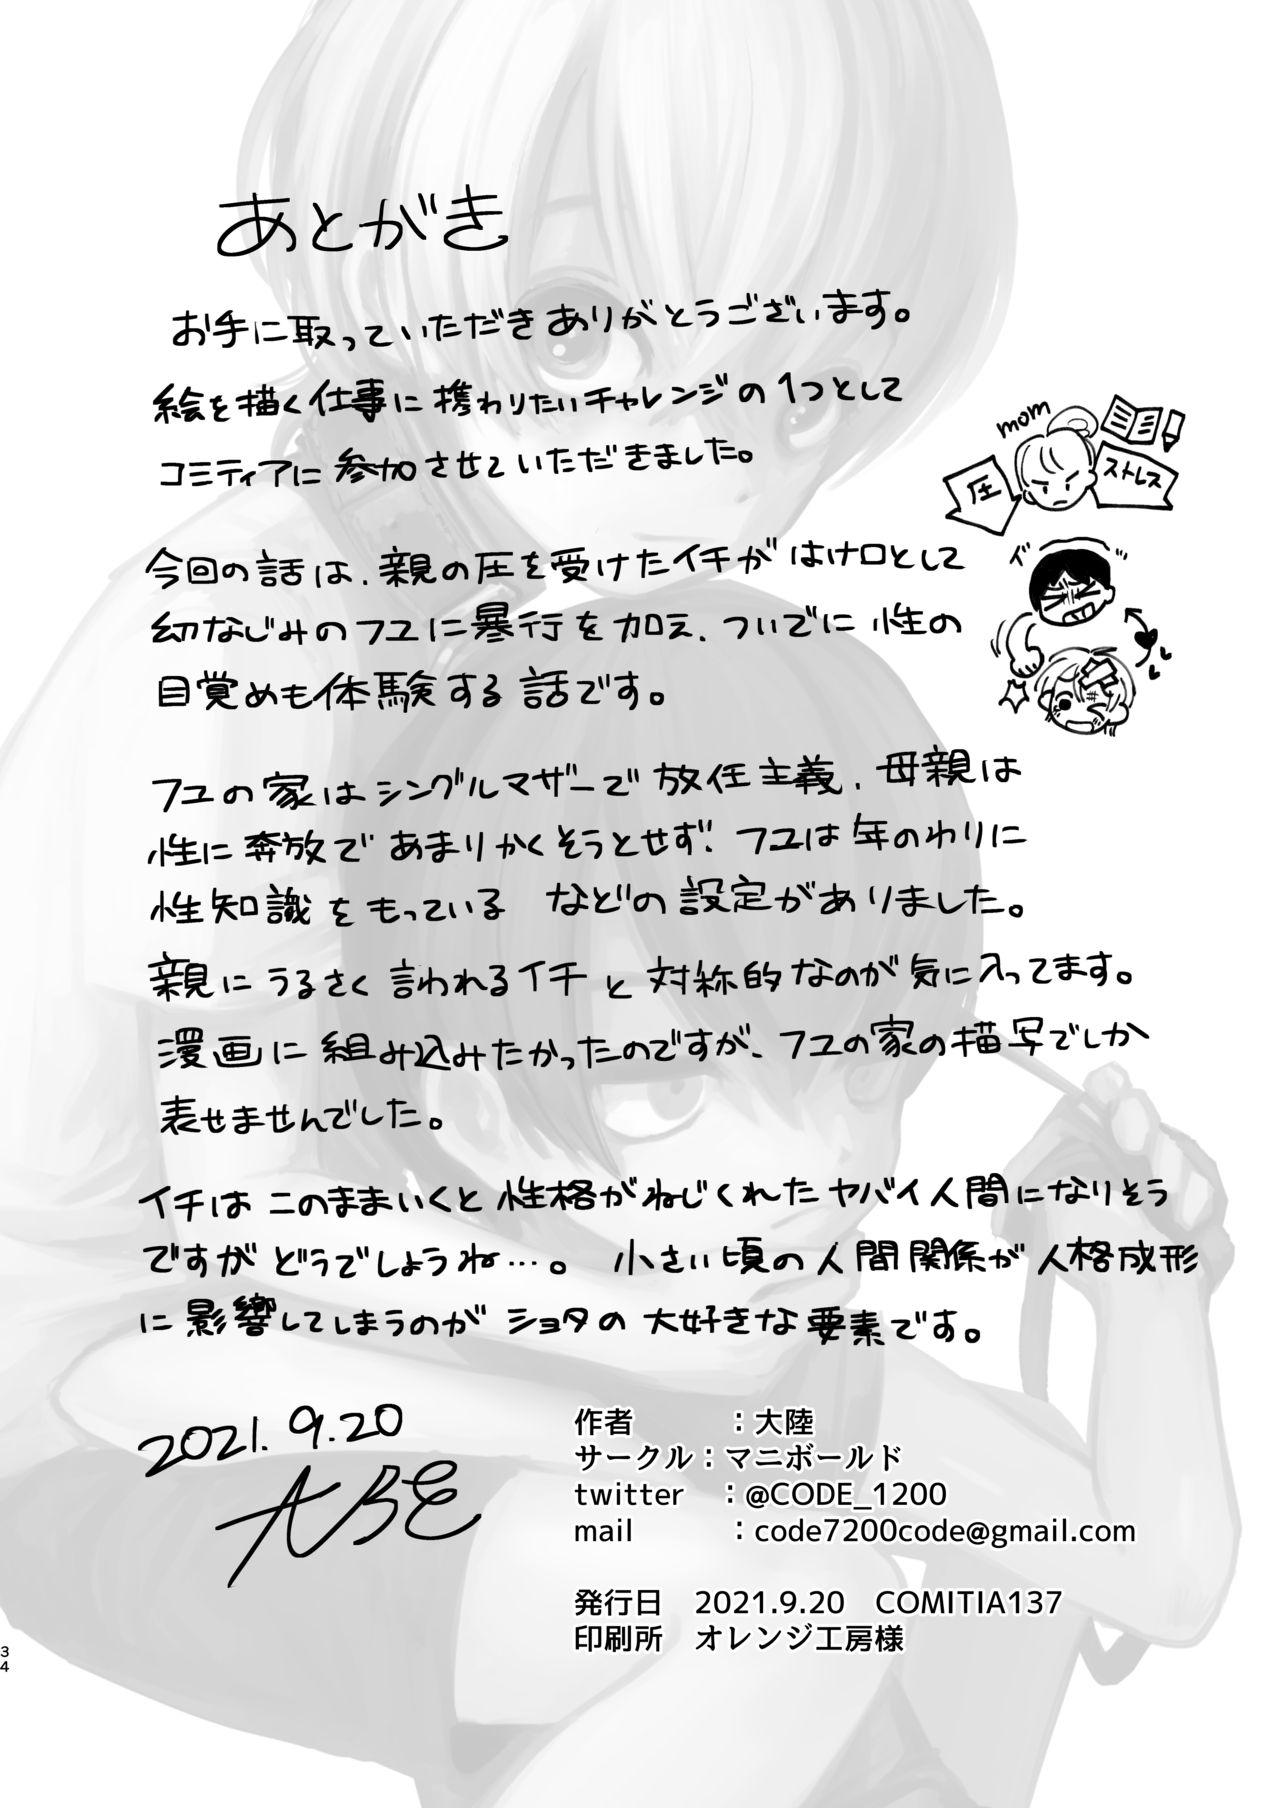 あとがき
お手に取っていただきありがとうございます。
絵を描く仕事に携わりたいチャレンジの1つとして
コミティアに参加させていただきました。
mom
圧
ストレス
今回の話は、親の圧を受けたイチがはけ口として
幼なじみのフユに暴行を加え、ついでに性の
目覚めも体験する話です。
フユの家はシングルマザーで放任主義、母親は
性に奔放であまりかくそうとせず、フユは年のわりに
性知識をもっている などの設定がありました。
親にうるさく言われるイチと対称的なのが気に入ってます。
漫画に組み込みたかったのですが、フユの家の描写でしか
表せませんでした。
イチはこのままいくと性格がねじくれたヤバイ人間になりそう
ですがどうでしょうね…。 小さい頃の人間関係が人格成形
に影響してしまうのがショタの大好きな要素です。
2021.9.20
作者 ：大陸
サークル：マニボールド
twitter ：@CODE_1200
mail ：code7200code@gmail.com
発行日 2021.9.20 COMITIA137
印刷所 オレンジ工房様
34